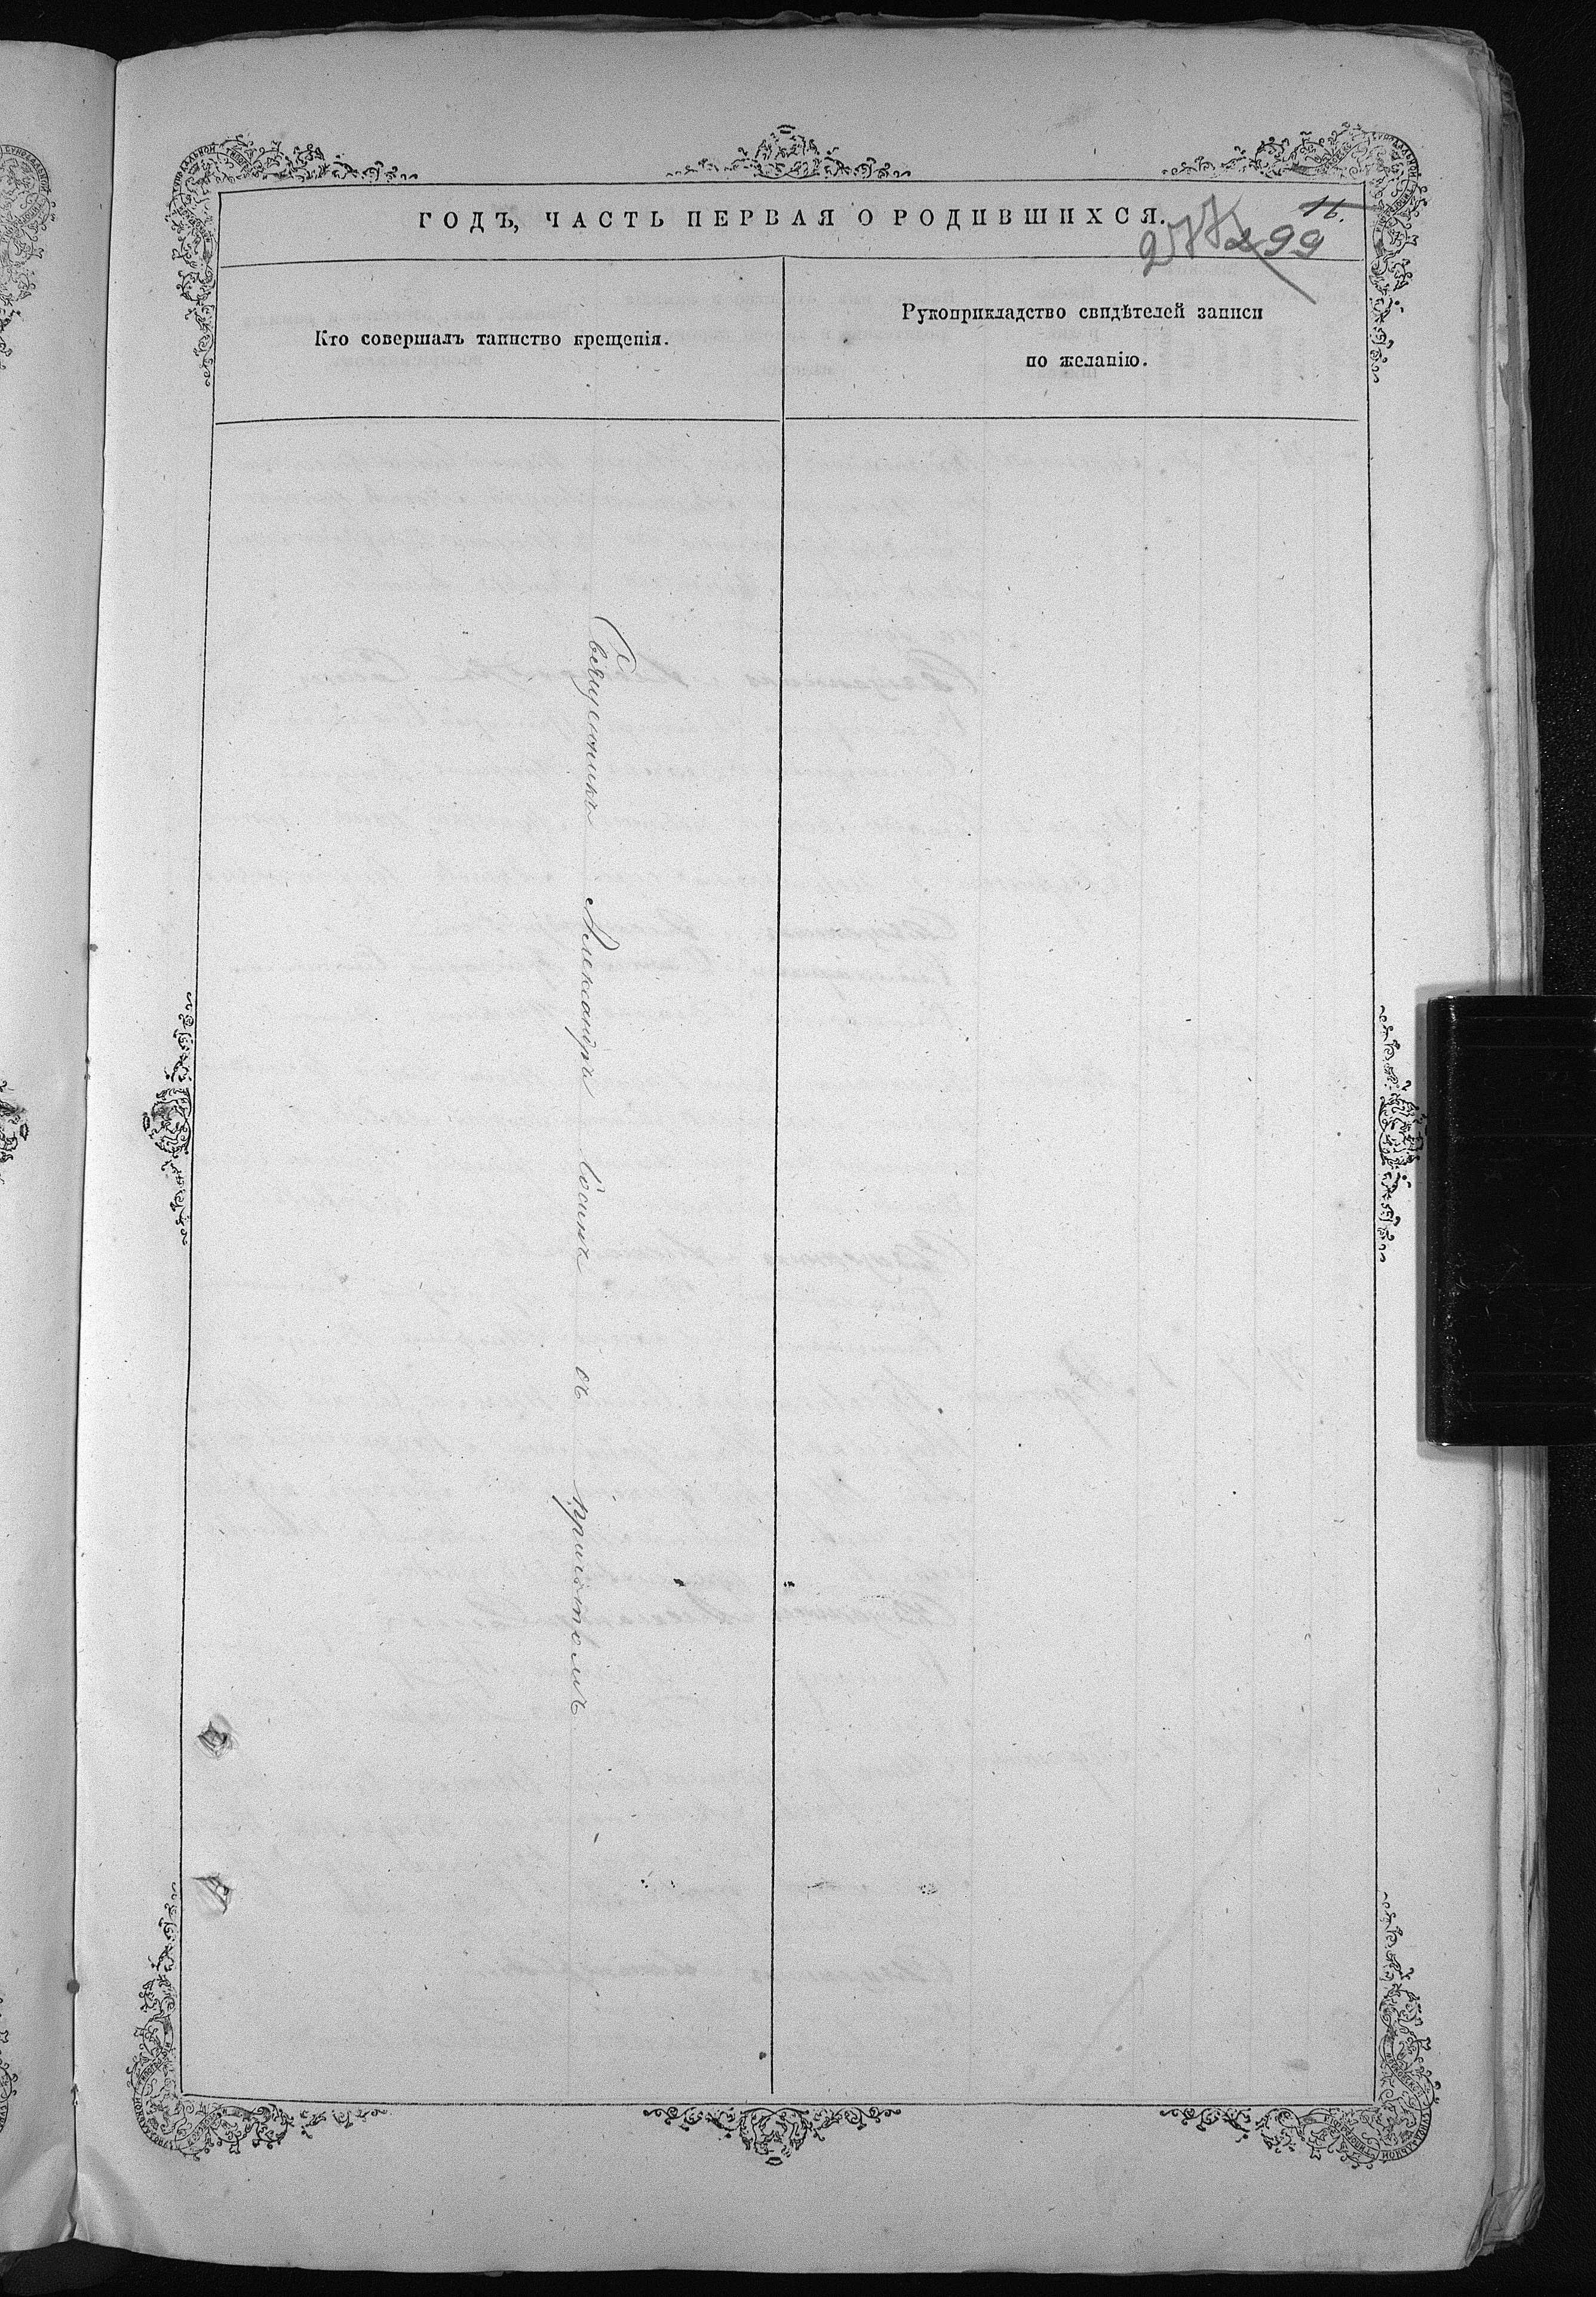 ГОДЪ, ЧАСТЬ ПЕРВАЯ О РОДИВШИХСЯ.
16.
277
299
Кто совершалъ таинство крещенія.
Рукоприкладство свидѣтелей записи
по желанію.
Священникъ Александръ съ причтомъ